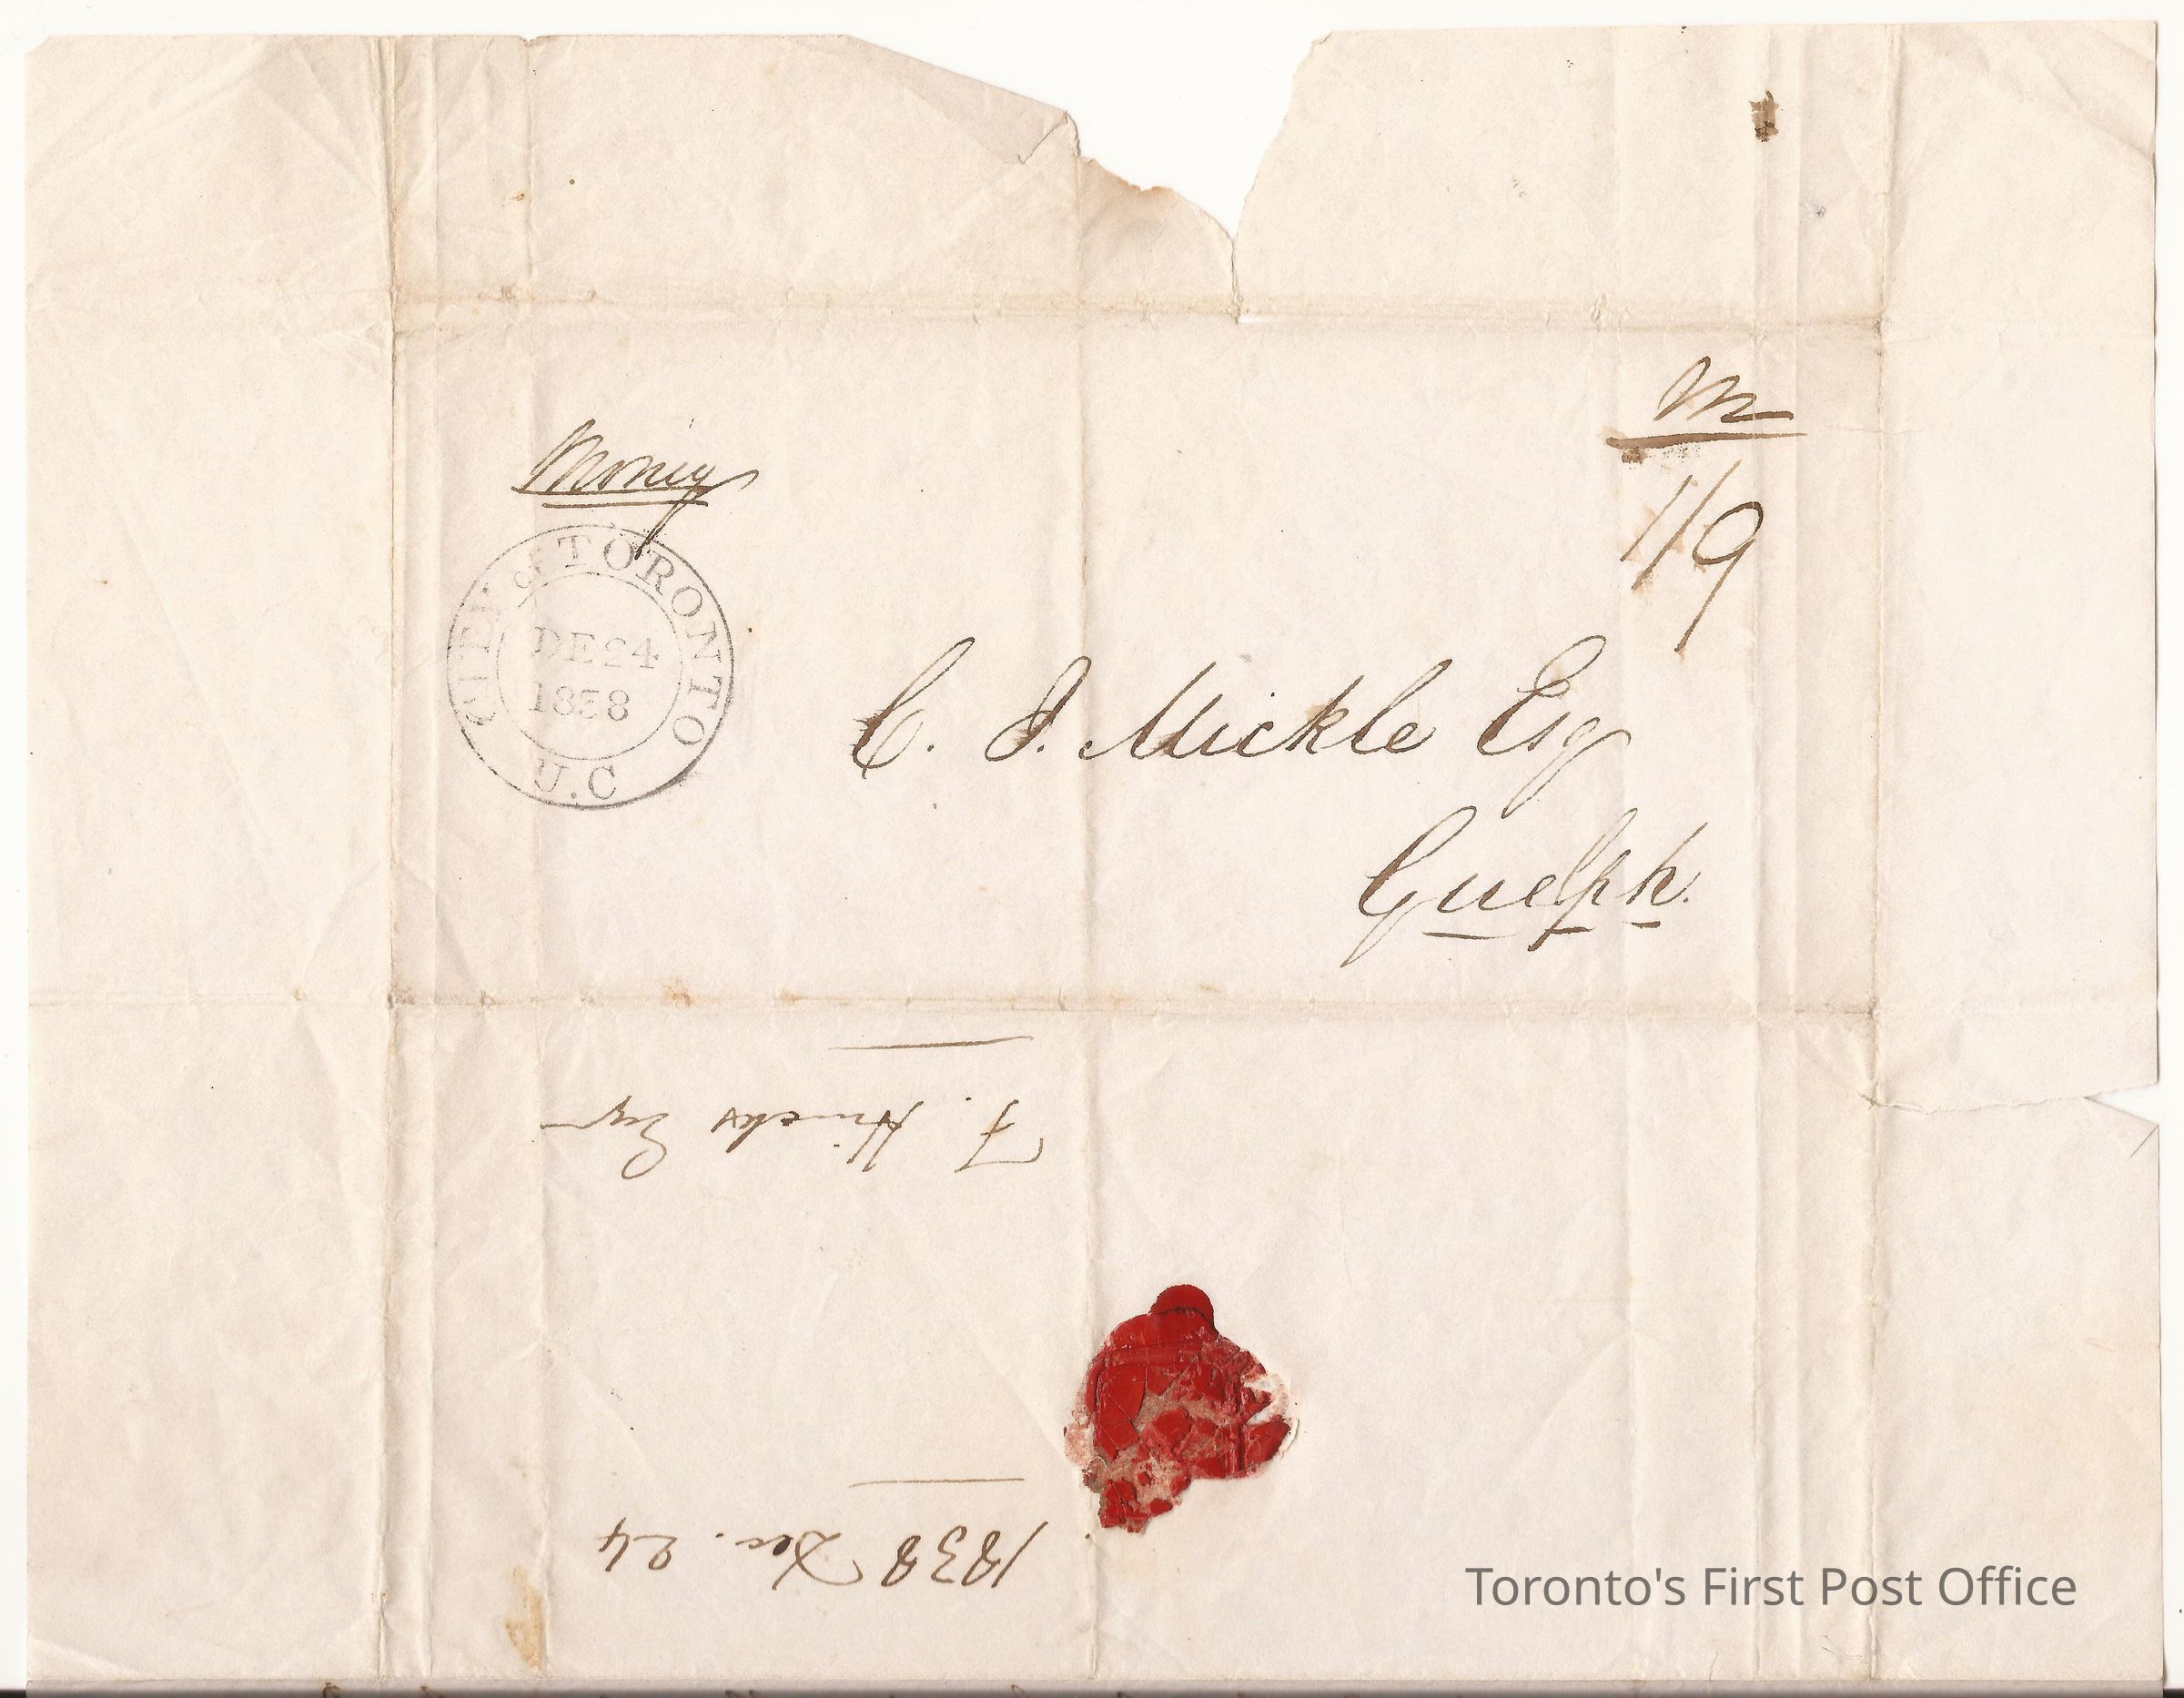 m
Money
1/9
CITY of TORONTO
DE 24
1838
U.C
C. J. Mickle Esq
Guelph.
F. Hincks Esqr
1838 Dec. 24
Toronto's First Post Office